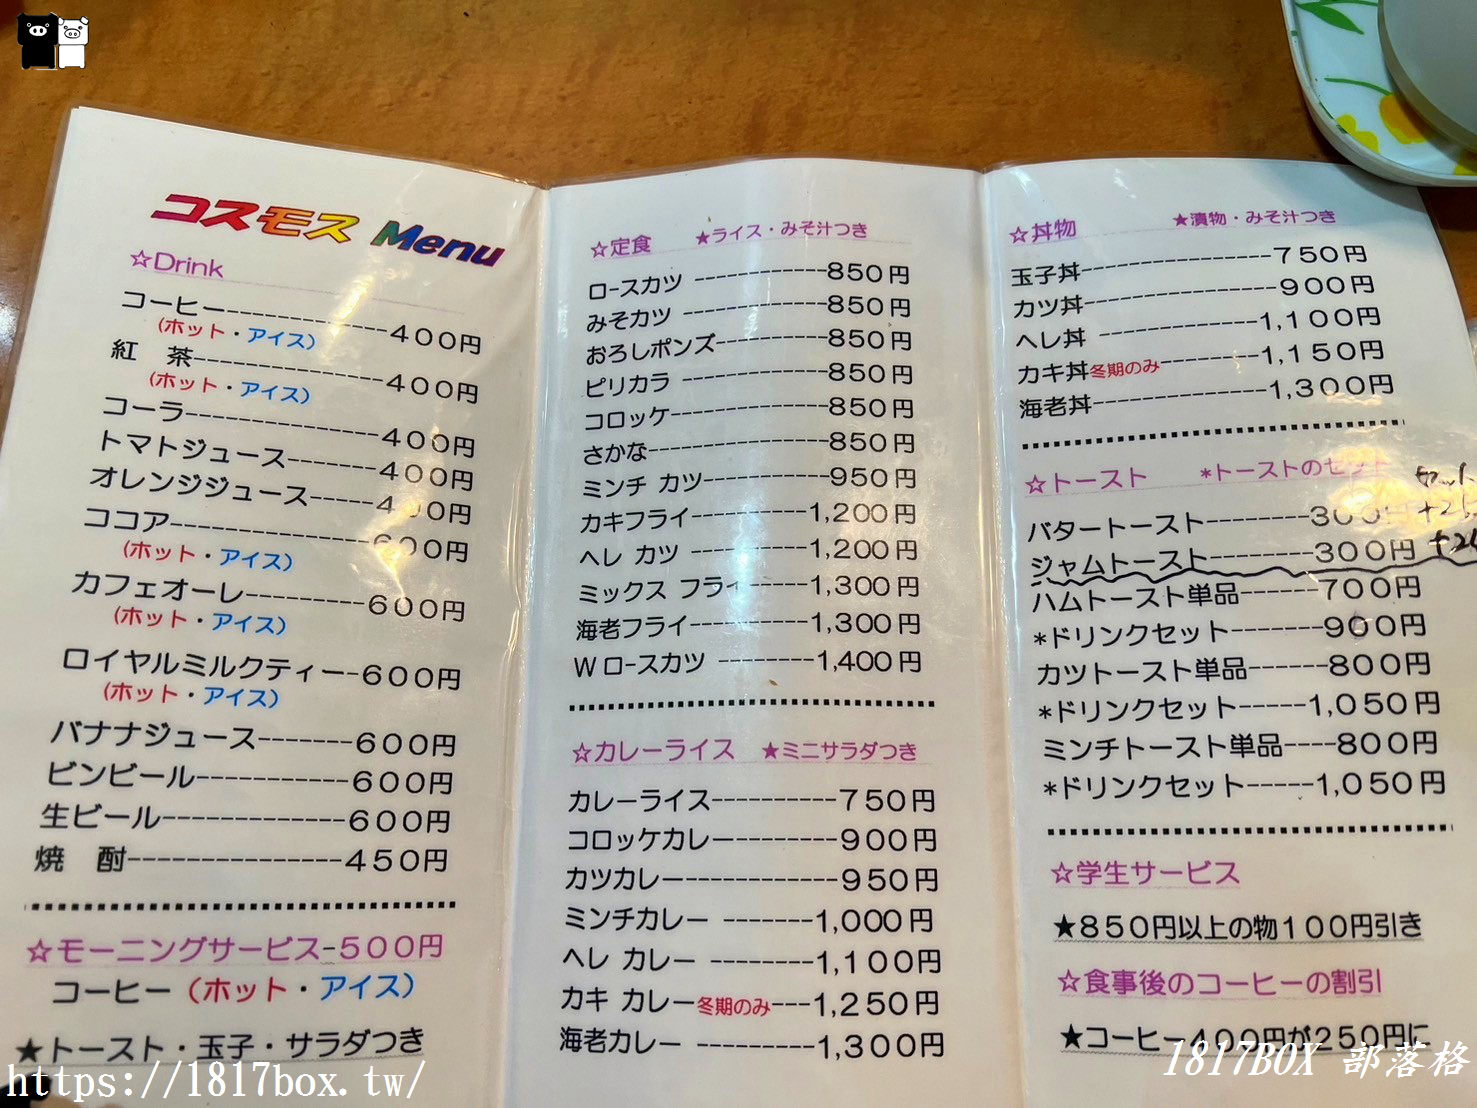 コスモス Menu
☆Drink
コーヒー----------------400円
(ホット・アイス)
紅 茶-------------------400円
(ホット・アイス)
コーラ-------------------400円
トマトジュース---------400円
オレンジジュース------400円
ココア--------------------600円
(ホット・アイス)
カフェオーレ------------600円
(ホット・アイス)
ロイヤルミルクティー-600円
(ホット・アイス)
バナナジュース-------600円
ビンビール------------600円
生ビール--------------600円
焼 酎----------------450円
☆モーニングサービス-500円
コーヒー(ホット・アイス)
★トースト・玉子・サラダつき
☆定食 ★ライス・みそ汁つき
ロースカツ -------------850円
みそカツ --------------850円
おろしポンズ-----------850円
ピリカラ --------------850円
コロッケ---------------850円
さかな-----------------850円
ミンチ カツ------------950円
カキフライ-----------1,200円
ヘレ カツ -----------1,200円
ミックス フライ ------1,300円
海老フライ-----------1,300円
Wロースカツ ---------1,400円
☆カレーライス ★ミニサラダつき
カレーライス----------750円
コロッケカレー---------900円
カツカレー------------950円
ミンチカレー --------1,000円
ヘレ カレー ---------1,100円
カキ カレー冬期のみ---1,250円
海老カレー ----------1,300円
☆丼物 ★漬物・みそ汁つき
玉子丼------------------750円
カツ丼------------------900円
ヘレ丼 ---------------1,100円
カキ丼冬期のみ---------1,150円
海老丼----------------1,300円
☆トースト *トーストのセット
セット
バタートースト---------300
ジャムトースト---------300円
ハムトースト単品------700円
*ドリンクセット-------900円
カツトースト単品------800円
*ドリンクセット-----1,050円
ミンチトースト単品----800円
*ドリンクセット-----1,050円
☆学生サービス
★850円以上の物100円引き
☆食事後のコーヒーの割引
★コーヒー400円が250円に
https://1817box.tw/
1817BOX 部落格